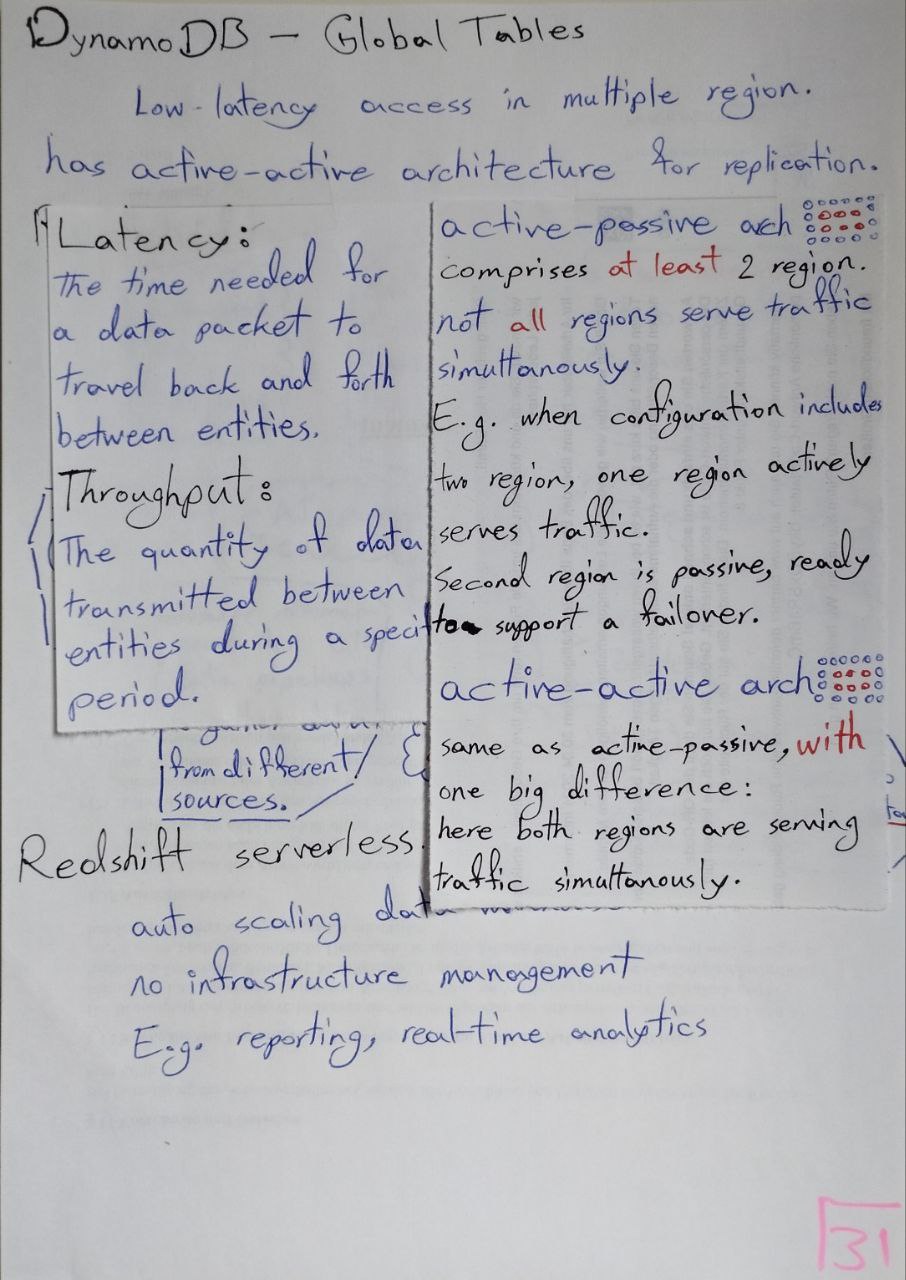 DynamoDB - Global Tables
Low-latency access in multiple region.
has active-active architecture for replication.
Latency:
The time needed for
a data packet to
travel back and forth
between entities.
Throughput:
The quantity of data
transmitted between
entities during a specif
period.
active-passive arch
comprises at least 2 region.
not all regions serve traffic
simultanously.
E.g. when configuration includes
two region, one region actively
serves traffic.
Second region is passive, ready
to support a failover.
active-active arch
same as active-passive, with
one big difference:
here both regions are serving
traffic simultanously.
from different
sources.
Redshift serverless
auto scaling data
no infrastructure management
E.g. reporting, real-time analytics
31